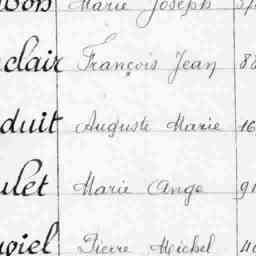 Marie Joseph
clair François Jean 88
duit Auguste Marie 16
ulet Marie Ange 91
Pierre Michel